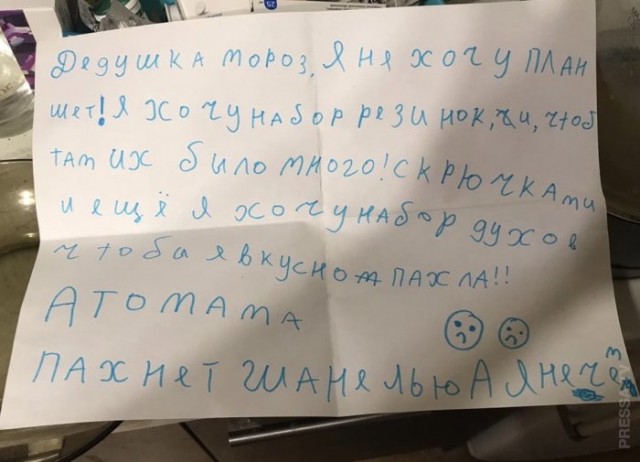 Дедушка мороз, я не хочу план
шет! я хочу набор резинок, и, чтоб
там их било много! с крючками
и ещё я хочу набор духов
чтоби я вкусно пахла!!
А то мама
пахнет шанелью А я нечем
PRESSA.TV